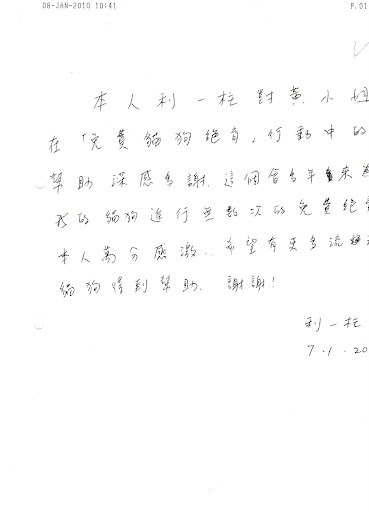 08-JAN-2010 10:41 P.01
本人利一柱對黃小姐
在「免費貓狗絕育」行動中的
幫助深感多謝.這個會多年來為
我的貓狗進行無數次的免費絕育
本人萬分感激..希望有更多流
貓狗得到幫助. 謝謝!
利一柱
7.1.20